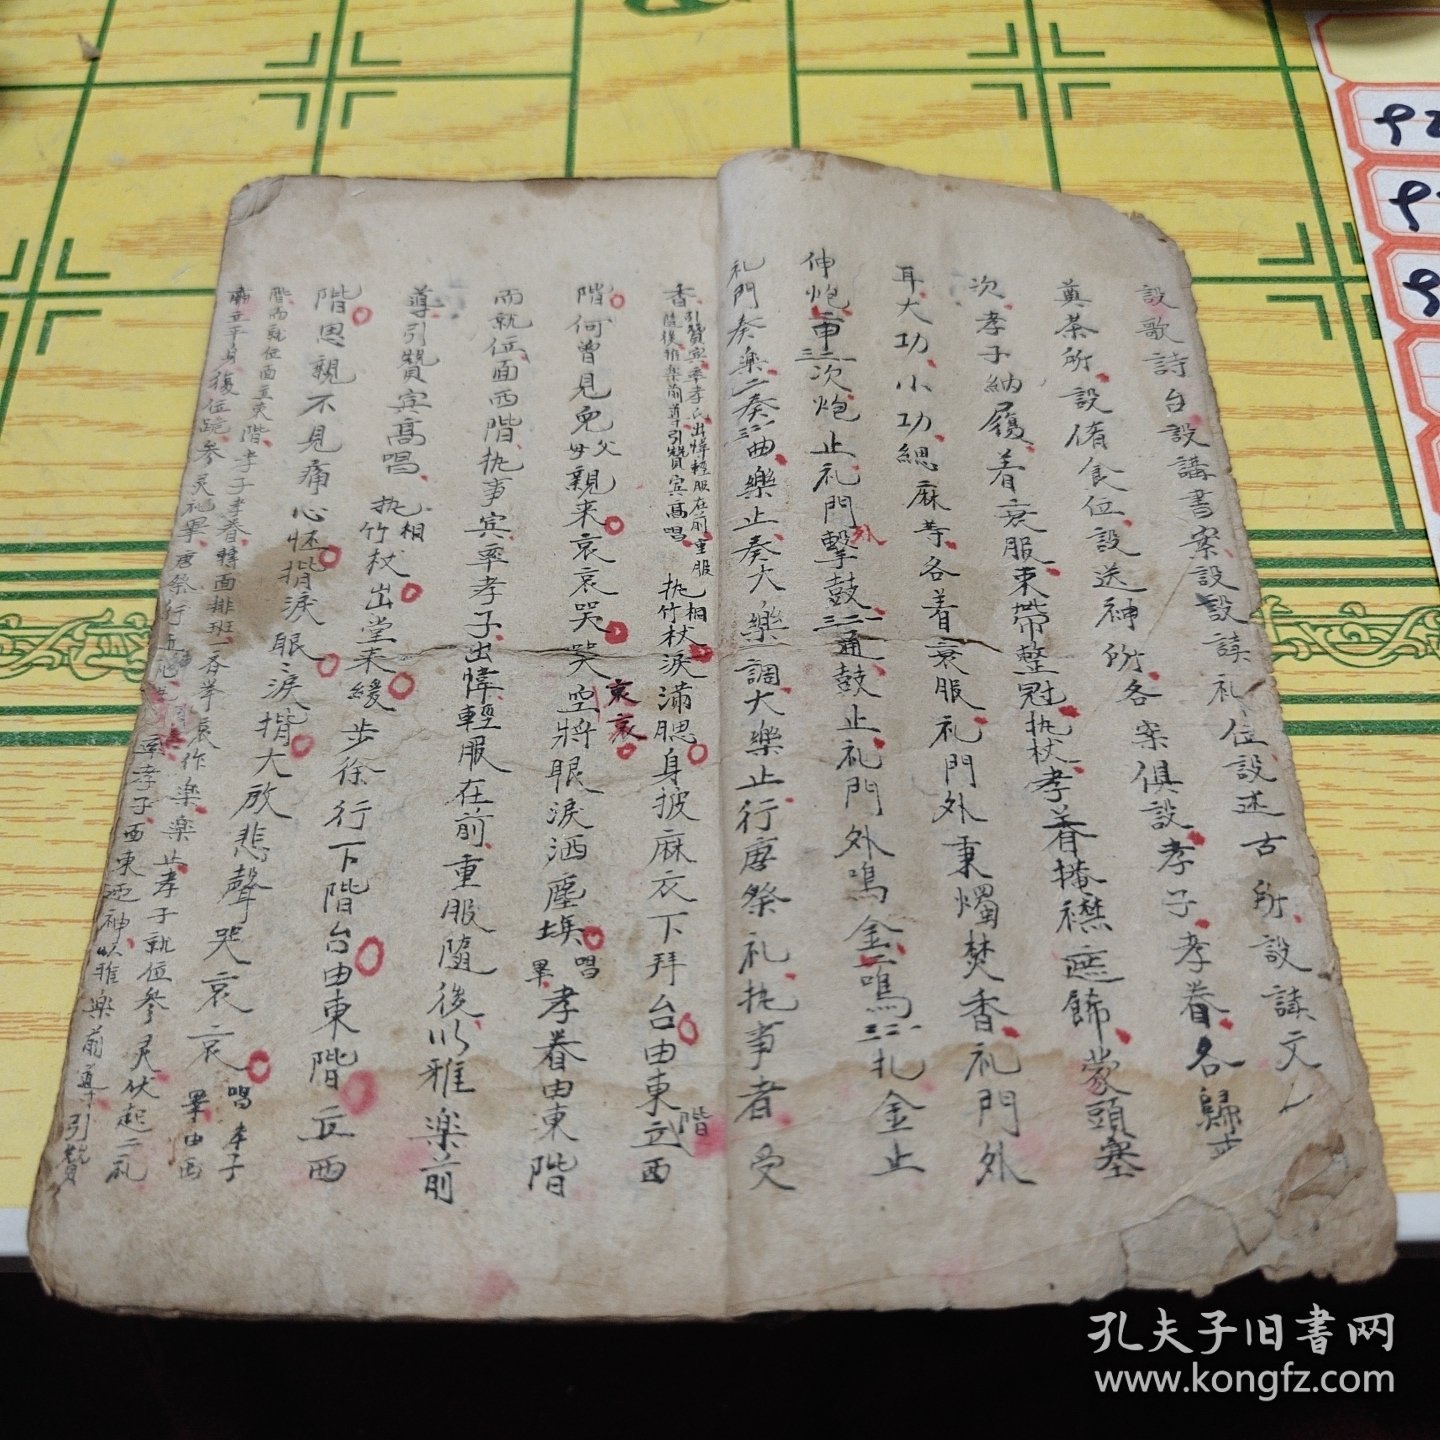 設歌詩台設講書案設設讀礼位設述古所設讀文
奠茶所設侑食位設送神所各案俱設孝子孝眷各歸
次孝子納履着衰服束帶整冠执杖孝眷掩襟遮飾蒙頭塞
耳大功小功總麻等各着衰服礼門外秉燭焚香礼門外
伸炮二三次炮止礼門外擊鼓二三通鼓止礼門外鳴金二鳴三扎金止
礼門奏樂二奏三曲樂止奏大樂一調大樂止行唐祭礼执事者受
香引贊宾率孝氏出幃輕服在前重服
隨後雅樂前導引贊宾高唱
相执竹杖淚滿腮身披麻衣下拜台由東階立西
階何曾見兔父母親来哀哀哭哭哀哀空將眼淚洒塵埃唱畢孝眷由東階
而就位面西階执事宾率孝子出幃輕服在前重服隨後以雅樂前
導引贊宾高唱相执竹杖出堂来緩步徐行下階台由東階立西
階恩親不見痛心怀揩淚眼淚揩大放悲聲哭哀哀唱孝子畢由西
階而就位面至東階孝子孝眷轉面排班
平身復位跪參灵礼畢唐祭行
作樂樂止孝子就位參灵伏起二礼
率孝子西東迎神以雅樂前導引贊
孔夫子旧书网
www.kongfz.com